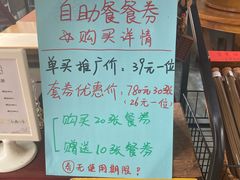 自助餐餐券
购买详情
单买推广价：39元一位
套券优惠价：780元30张
（26元一位）
购买20张餐券
赠送10张餐券
无使用期限？